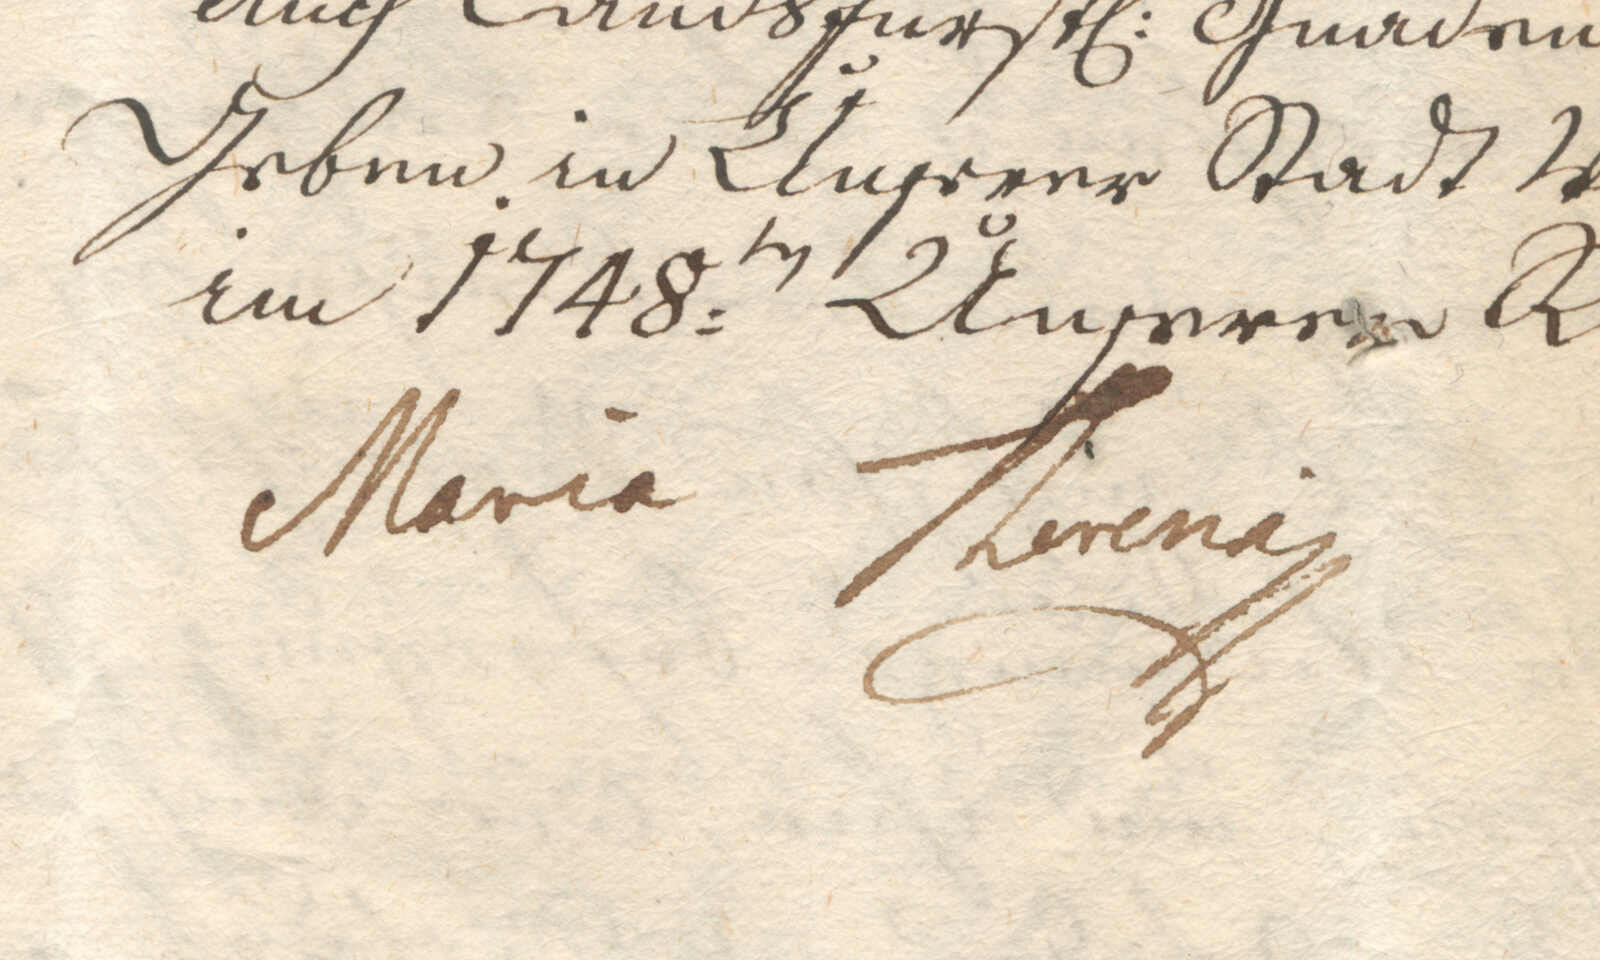 auch Landsfürstl: Gnaden
Geben in Unserer Stadt
im 1748:ten Unserer
Maria Theresia